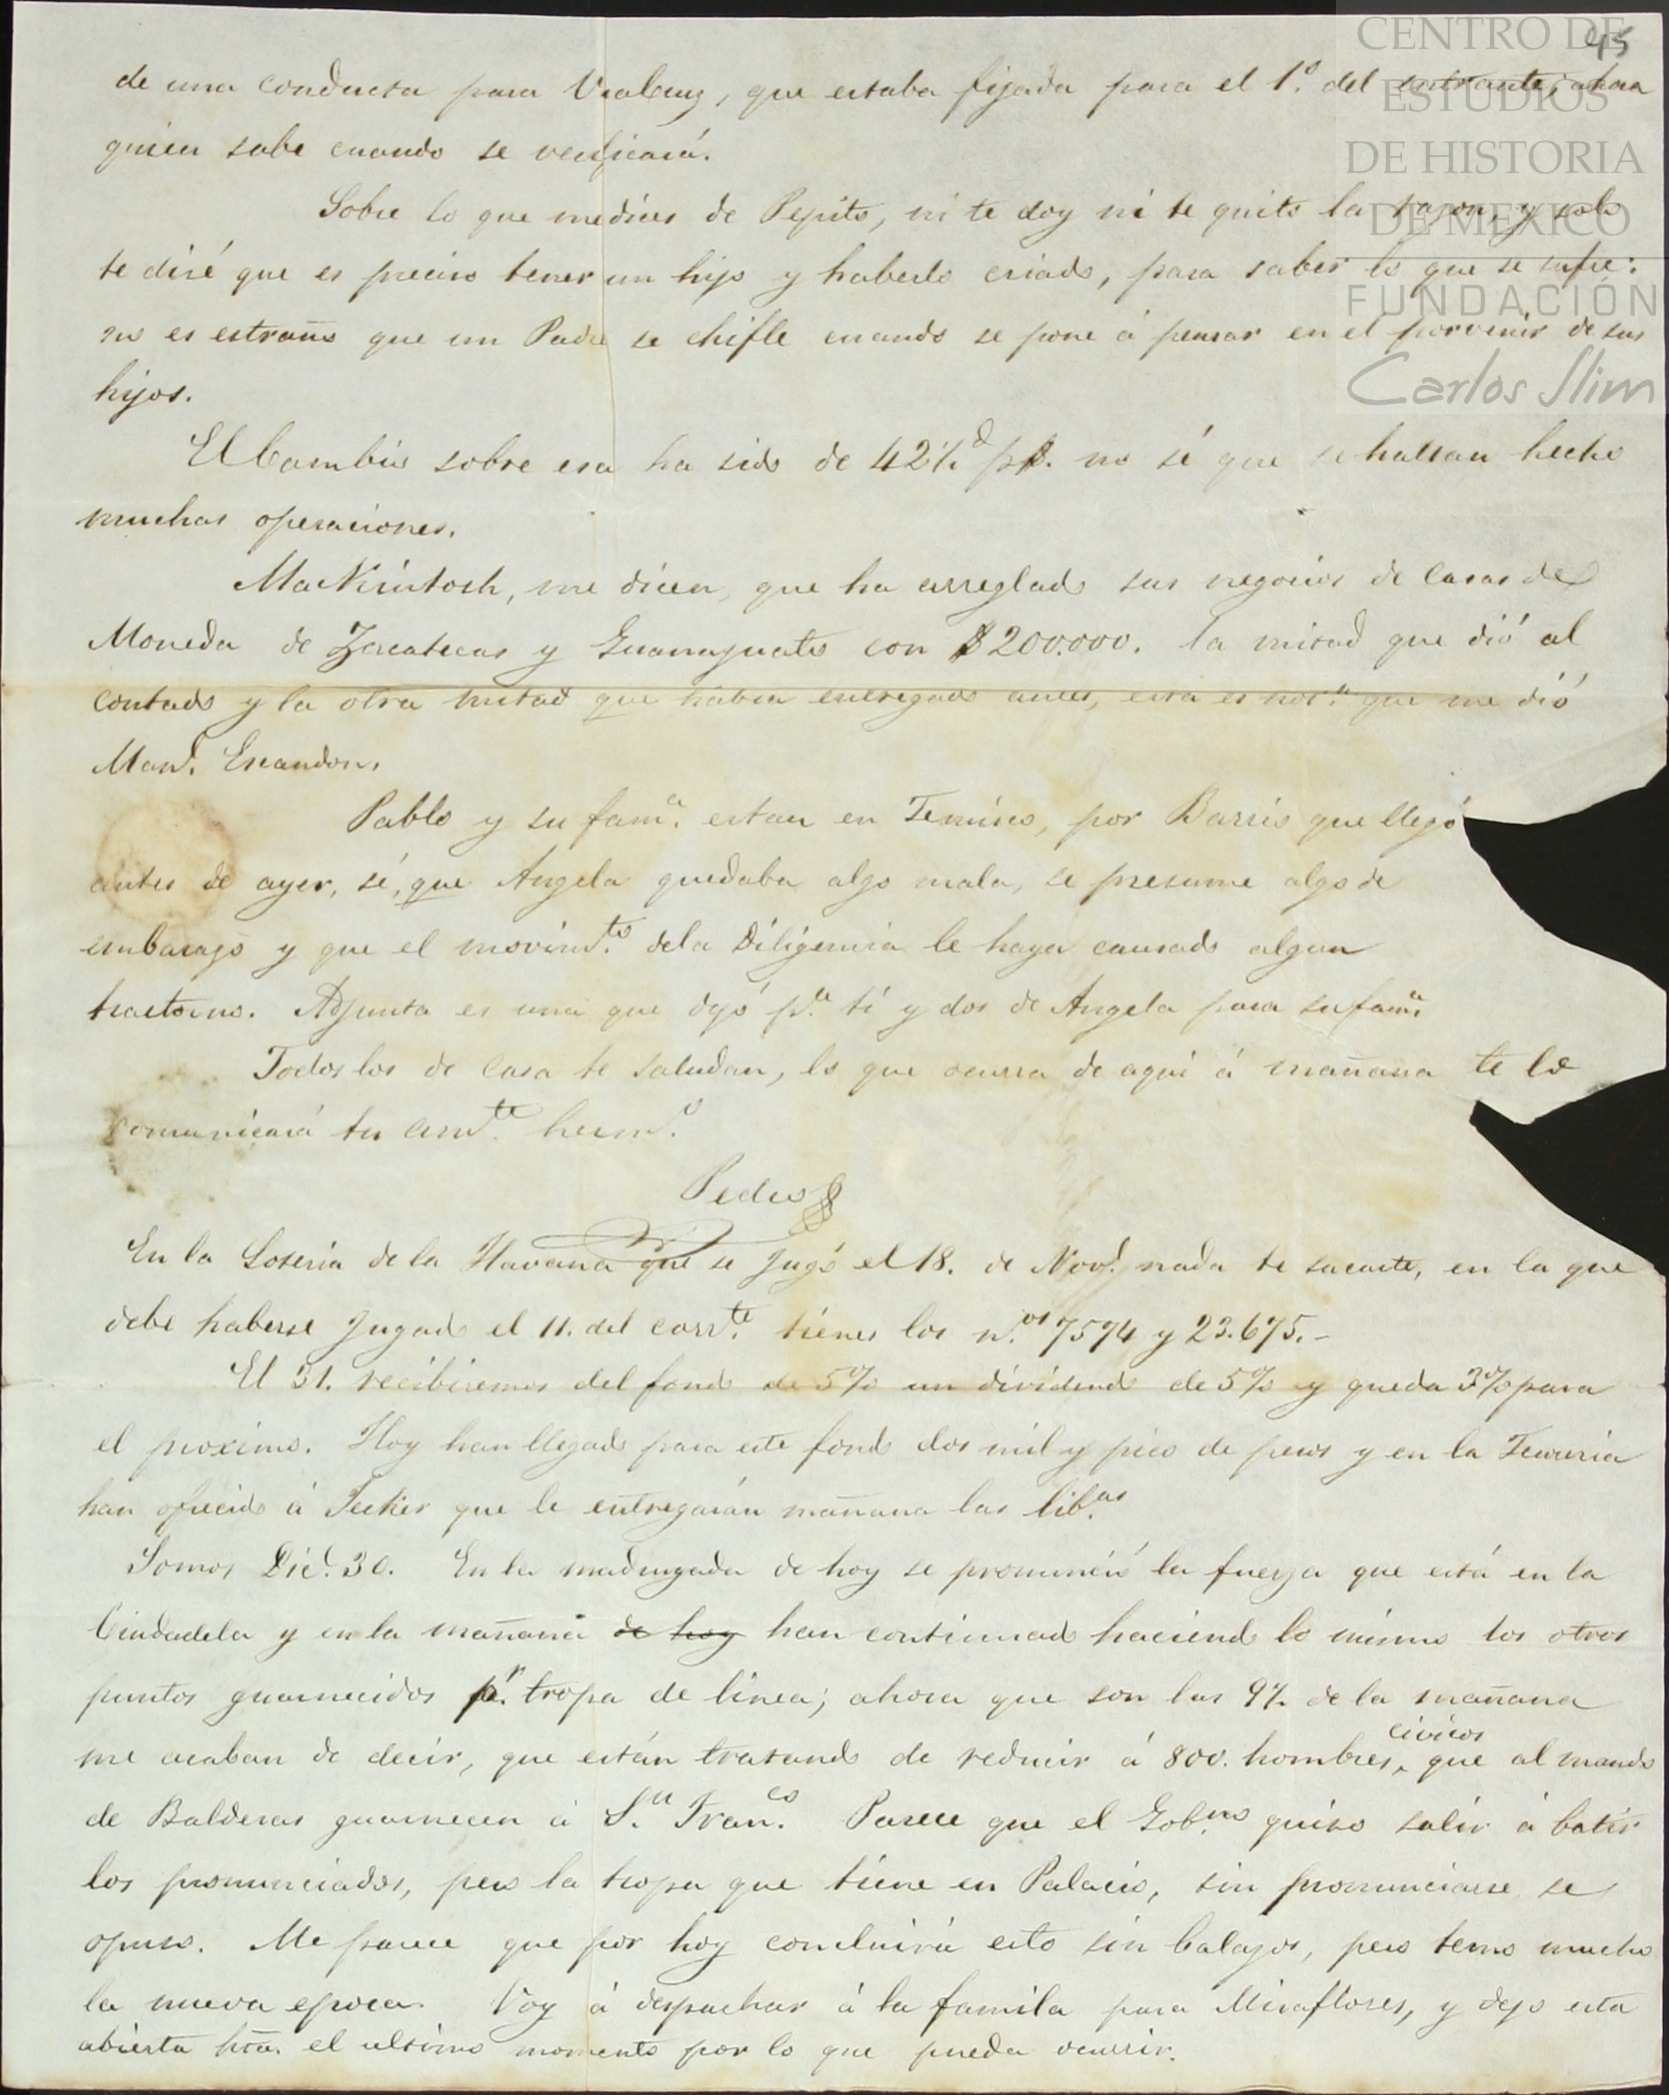 45
CENTRO DE
ESTUDIOS
DE HISTORIA
DE MEXICO
FUNDACIÓN
Carlos Slim
de una conducta para Veracruz, que estaba fijada para el 1.º del entrante, ahora
quien sabe cuando se verificará.
Sobre lo que me dices de Pepito, ni te doy ni te quito la razon, y solo
te diré que es preciso tener un hijo y haberlo criado, para saber lo que se sufre:
no es estraño que un Padre se chifle cuando se pone á pensar en el porvenir de sus
hijos.
El Cambio sobre esa ha sido de 42½ d p$. no sé que se hallan hecho
muchas operaciones.
MacKintosh, me dicen, que ha arreglado sus negocios de Casas de
Moneda de Zacatecas y Guanajuato con $200.000. la mitad que dió al
contado y la otra mitad que habia entregado antes, esta es not.ª que me dió
Man.l Escandon.
Pablo y su fam.ª estan en Temisco, por Barrio que llegó
antes de ayer, sé, que Angela quedaba algo mala, se presume algo de
embarazo y que el movim.to dela Diligencia le haya causado algun
trastorno. Adjunta es una que dejó p.ª tí y dos de Angela para su fam.ª
Todos los de casa te saludan, lo que ocurra de aqui á mañana te lo
comunicará tu am.te herm.º
Pedro
En la Loteria de la Havana que se Jugó el 18. de Nov.e nada te sacaste, en la que
debe haberse Jugado el 11. del corr.te tienes los n.os 7574 y 23.675.-
El 31. recibiremos del fondo de 5% un dividendo de 5% y queda 3% para
el proximo. Hoy han llegado para este fondo dos mil y pico de pesos y en la Tesoreria
han ofrecido á Tecker que le entregarán mañana las lib.as
Somos Dic.e 30. En la madrugada de hoy se pronunció la fuerza que está en la
Ciudadela y en la mañana de hoy han continuado haciendo lo mismo los otros
puntos guarnecidos p.r tropa de linea; ahora que son las 9½ de la mañana
me acaban de decir, que están tratando de reducir á 800. hombres, civicos que al mando
de Balderas guarnecen á S.n Fran.co Parece que el Gob.no quiso salir á batir
los pronunciados, pero la tropa que tiene en Palacio, sin pronunciarse se
opuso. Me parece que por hoy concluirá esto sin balazos, pero temo mucho
la nueva epoca. Voy á despachar á la famila para Miraflores, y dejo esta
abierta hta. el ultimo momento por lo que pueda ocurrir.